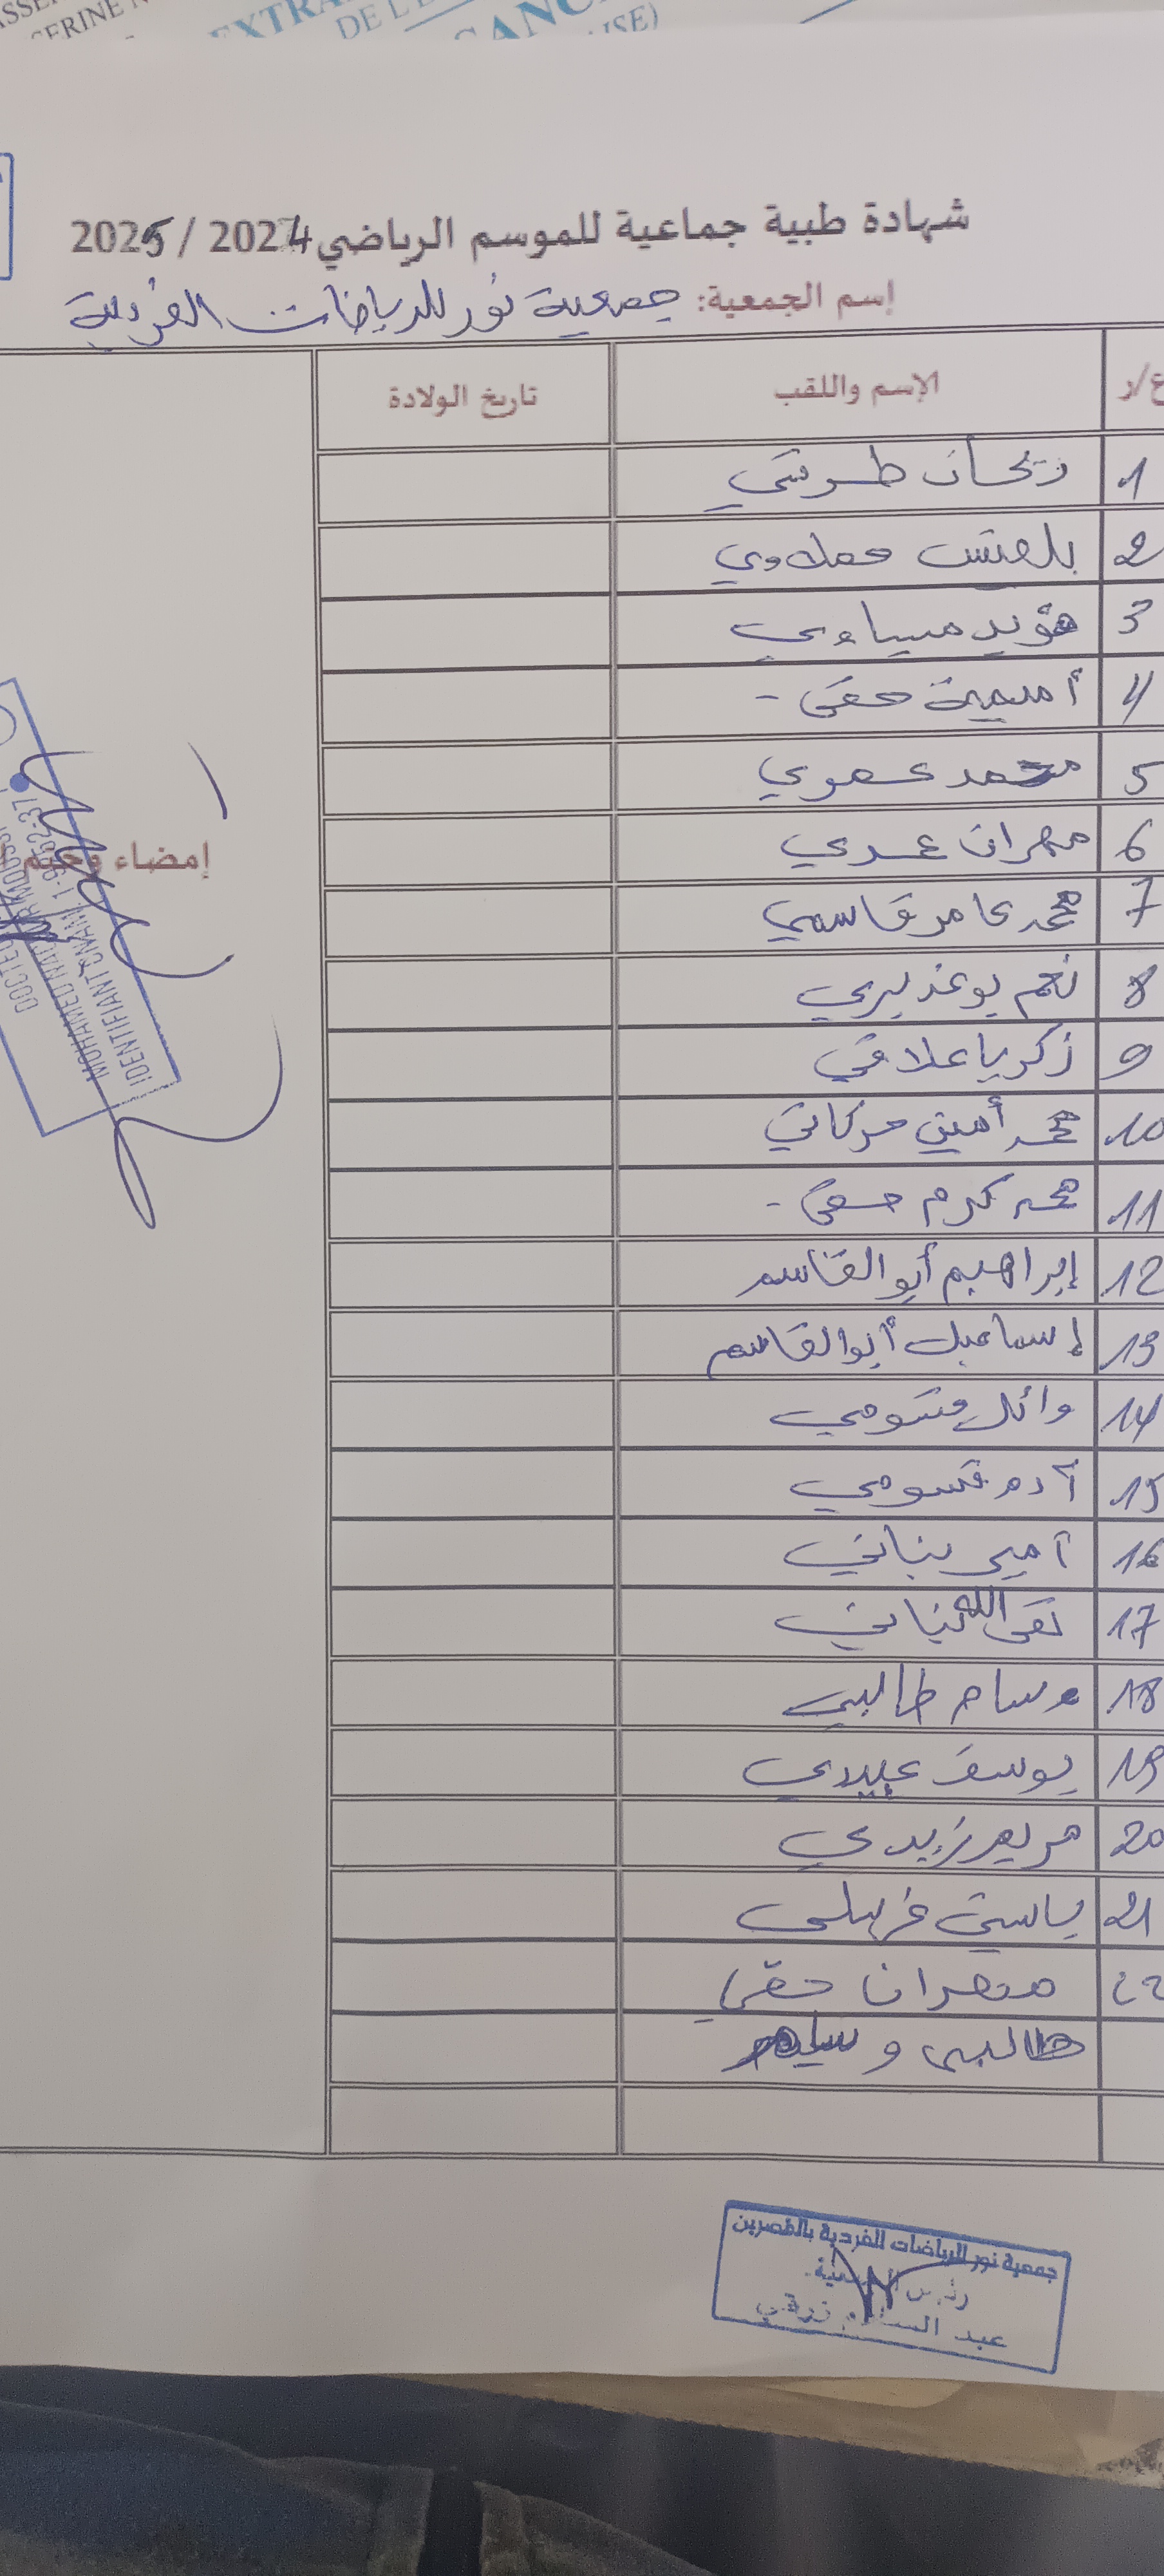 EXTRA
DE L'E
SANC
شهادة طبية جماعية للموسم الرياضي 2024 / 2025
إسم الجمعية: جمعية نور للرياضات الفردية
ع/ر الإسم واللقب تاريخ الولادة
1
2 بلقيس حملاوي
3 مؤيد عيساوي
4 أميمة حقي -
5 محمد عموي
6 مهران عمري
7 محمد عامر قاسمي
8 نعم بوغذيري
9 زكريا علاقي
10 محمد أمين حركاتي
11 محمد كرم حقي -
12 إبراهيم أبو القاسم
13 إسماعيل أبو القاسم
14 وائل قسومي
15 آدم قسومي
16 أمير بناني
17 تقى الله بناني
18 وسام طالبي
19 يوسف عبيدي
20 مريم زيدي
21 ياسين غرسلي
22 مهران حقي
طالبي وسيم
إمضاء وختم
DOCTEUR
MOHAMED
IDENTIFIANT CNAM
جمعية نور للرياضات الفردية بالقصرين
رئيس الجمعية
عبد السلام زرقي